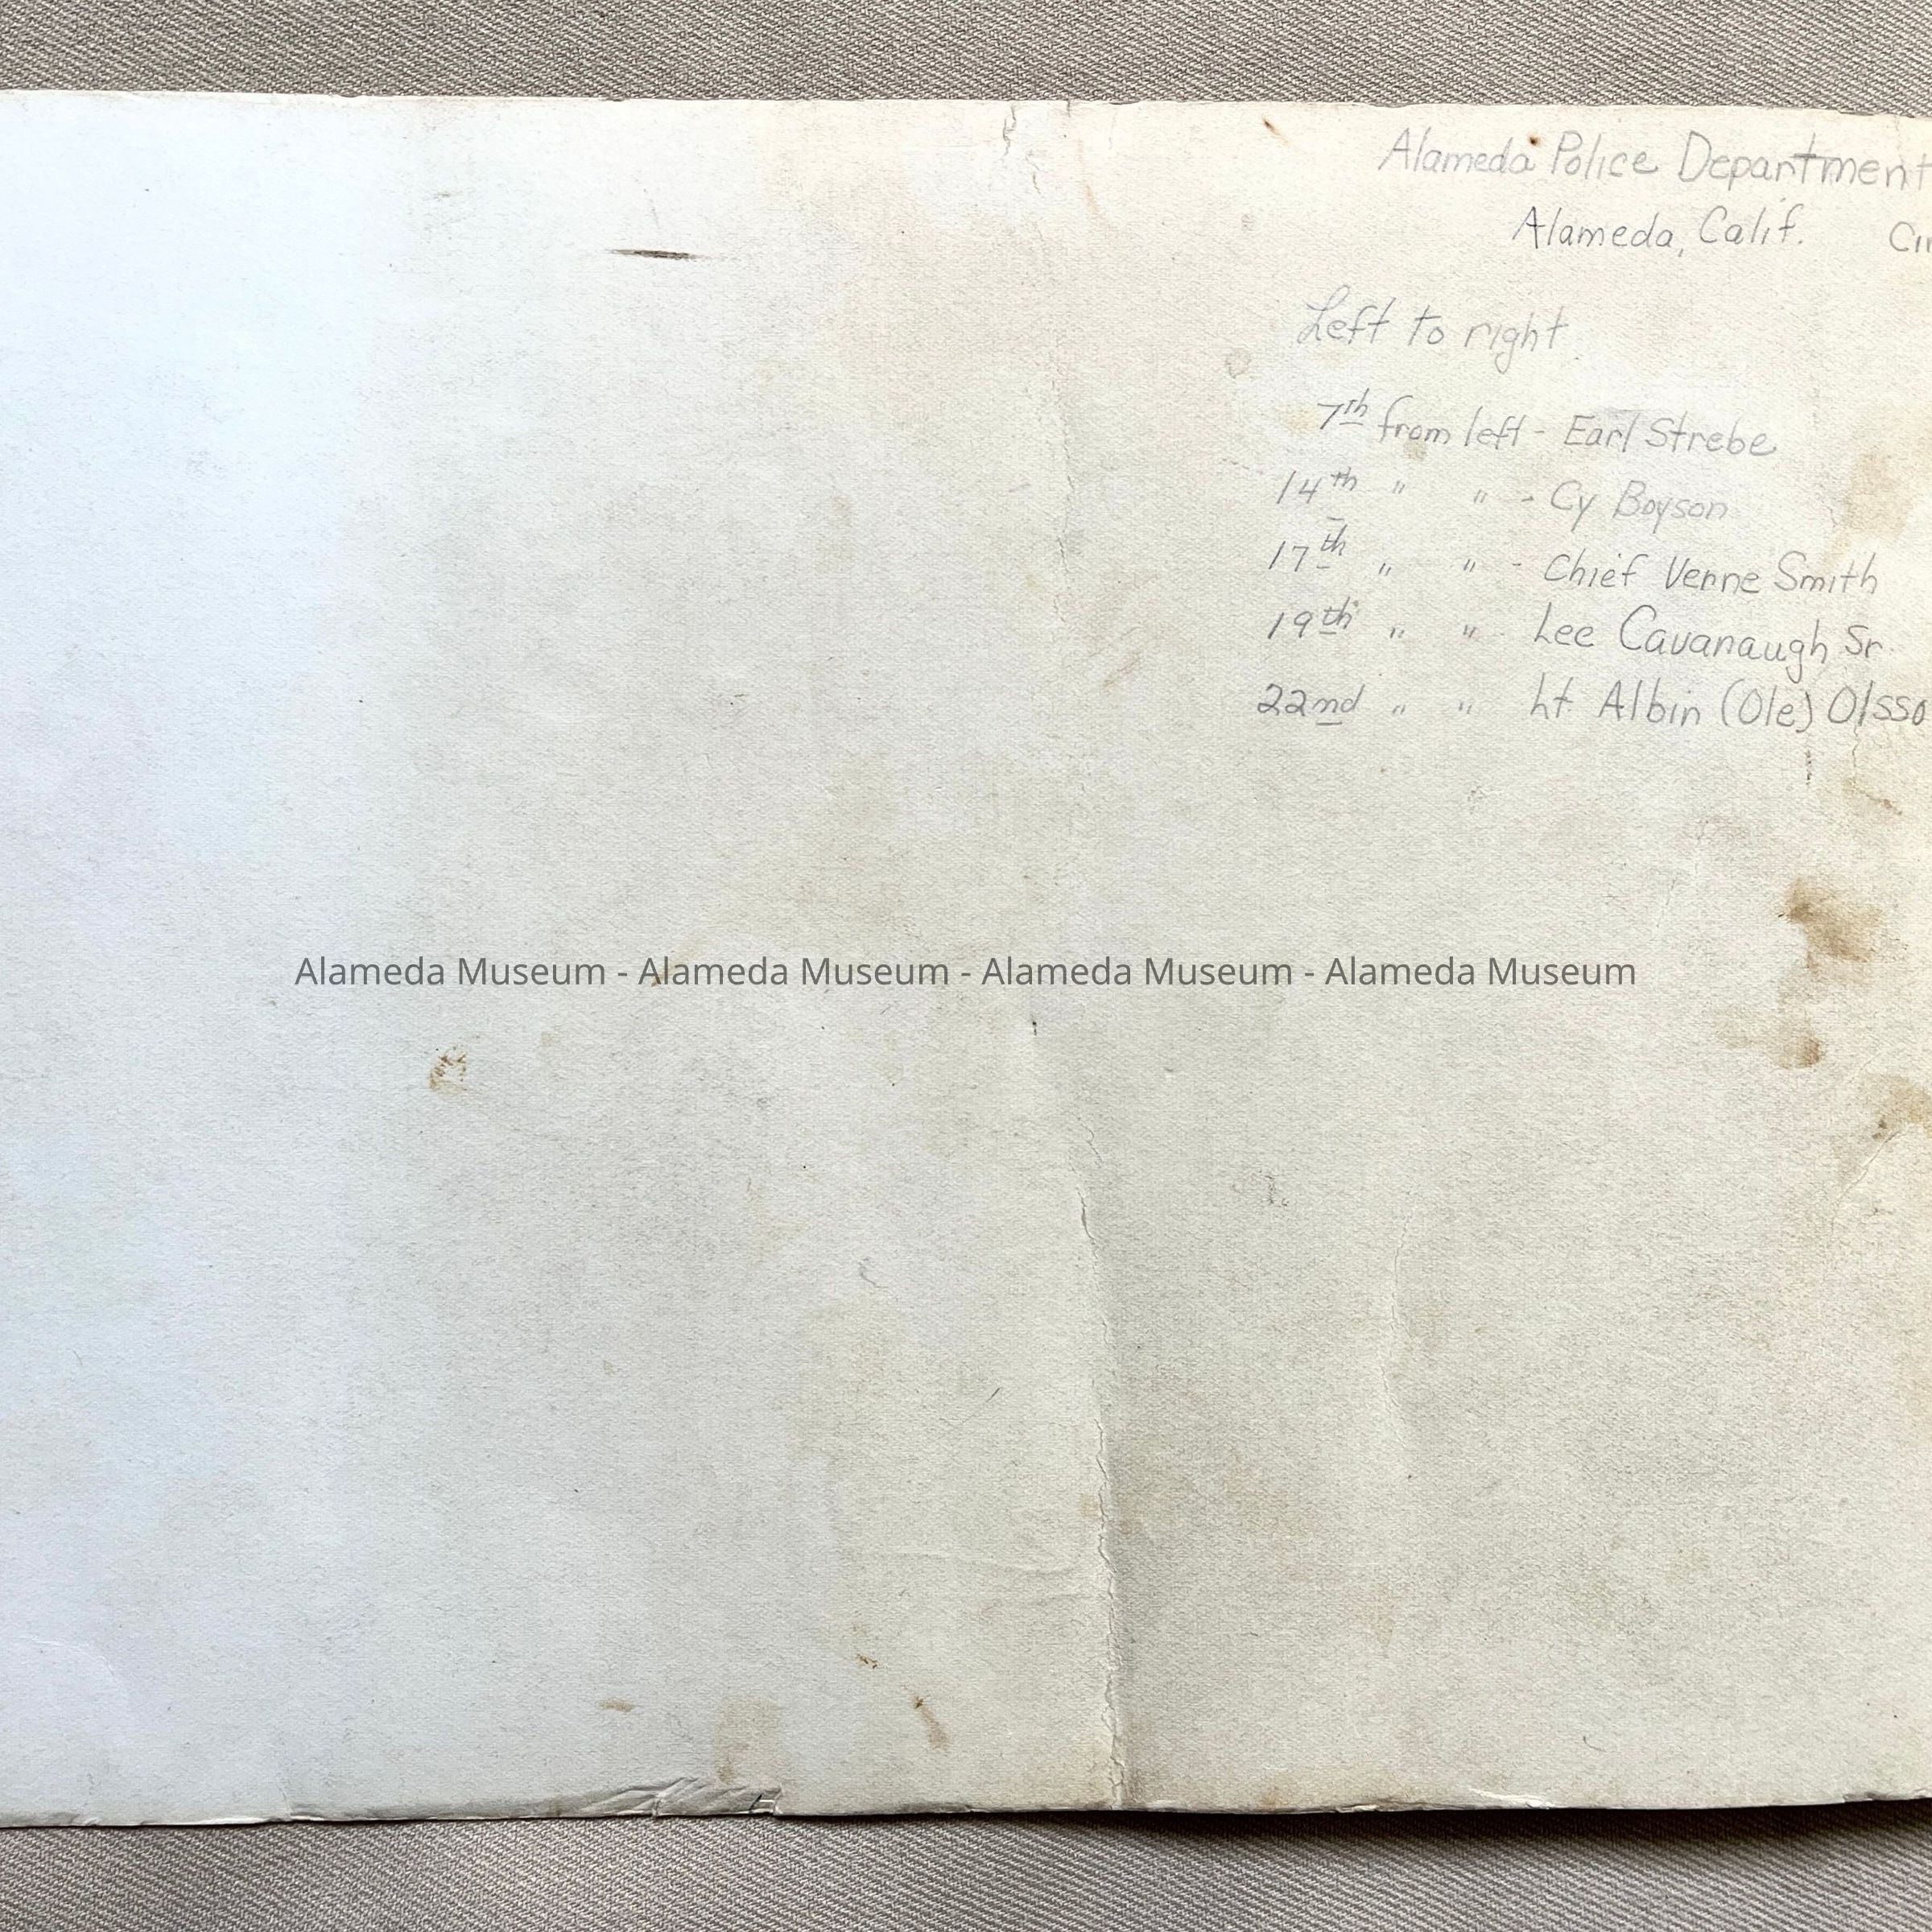 Alameda Police Department
Alameda, Calif.
Left to right
7th from left - Earl Strebe
14th " " - Cy Boyson
17th " " - Chief Verne Smith
19th " " - Lee Cavanaugh Sr.
22nd " " Lt. Albin (Ole) Olsso
Alameda Museum - Alameda Museum - Alameda Museum - Alameda Museum